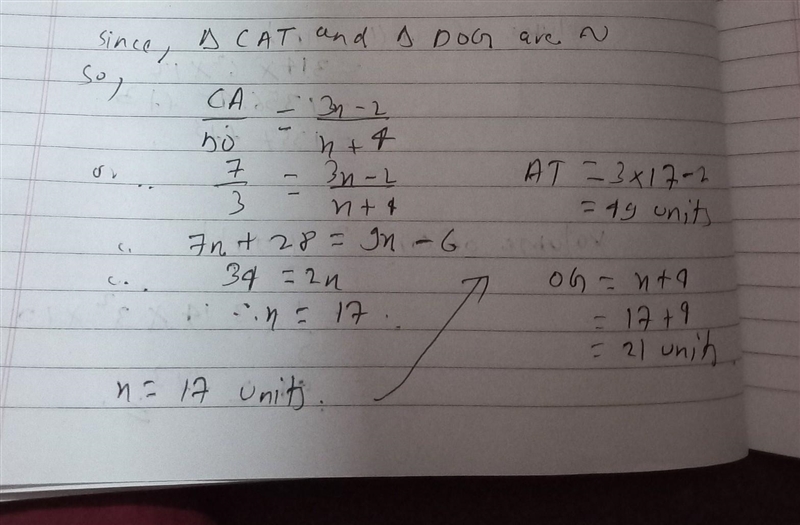 Since, Δ CAT and Δ DOG are ~
So,
CA/DO = 3x-2/x+4
or.. 7/3 = 3x-2/x+4
7x + 28 = 9x - 6
34 = 2x
∴ x = 17.
x = 17 units.
AT = 3×17-2
= 49 units
OG = x+4
= 17+4
= 21 units